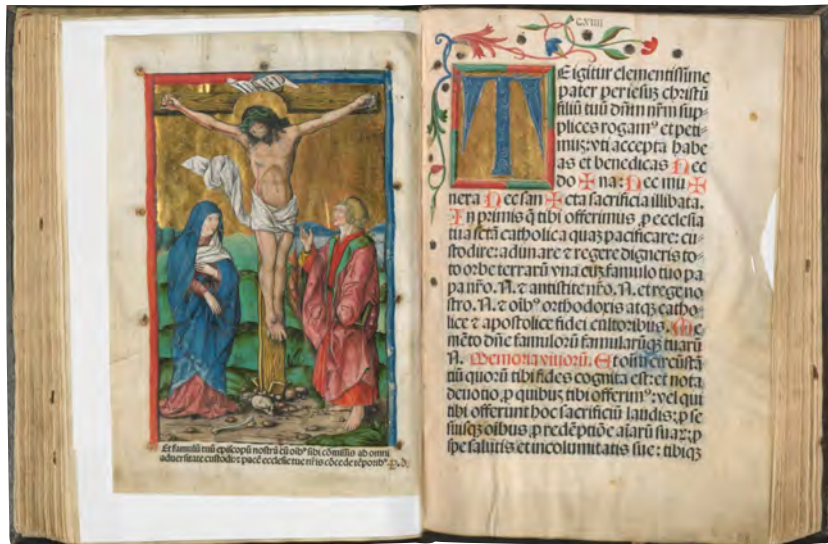 INRI
Et famulū tuū episcopū nostrū cū oībꝰ sibi cōmissis ab omni
aduersitate custodi: ⁊ pacē ecclesie tue nr̄is cōcede tēporibꝰ. P. d.
CXVIII
TE igitur clementissime
pater per iesuꝫ christū
filiū tuū dn̄m nr̄m sup-
plices rogamꝰ et peti-
muꝫ: vti accepta habe
as et benedicas Hec
do ✠ na: Hec mu ✠
nera Hec san ✠ cta sacrificia illibata.
In primis q̄ tibi offerimus ꝓ ecclesia
tua sctā catholica quaꝫ pacificare: cu-
stodire: adunare ⁊ regere digneris to-
to orbe terrarū vna cuꝫ famulo tuo pa
pa nr̄o. N. ⁊ antistite nr̄o. N. et rege no
stro. N. ⁊ oībꝰ orthodoxis atqꝫ catho-
lice ⁊ apostolice fidei cultoribus. Me
mēto dn̄e famulorū famularūqꝫ tuarū
N. Memoria viuorū. Et oīm circūstā
tiū quorū tibi fides cognita est: et nota
deuotio, ꝓ quibuꝫ tibi offerimꝰ: vel qui
tibi offerunt hoc sacrificiū laudis: ꝓ se
suisqꝫ oībus: ꝓ redēptiōe aīarū suaꝝ: ꝓ
spe salutis et incolumitatis sue: tibiqꝫ